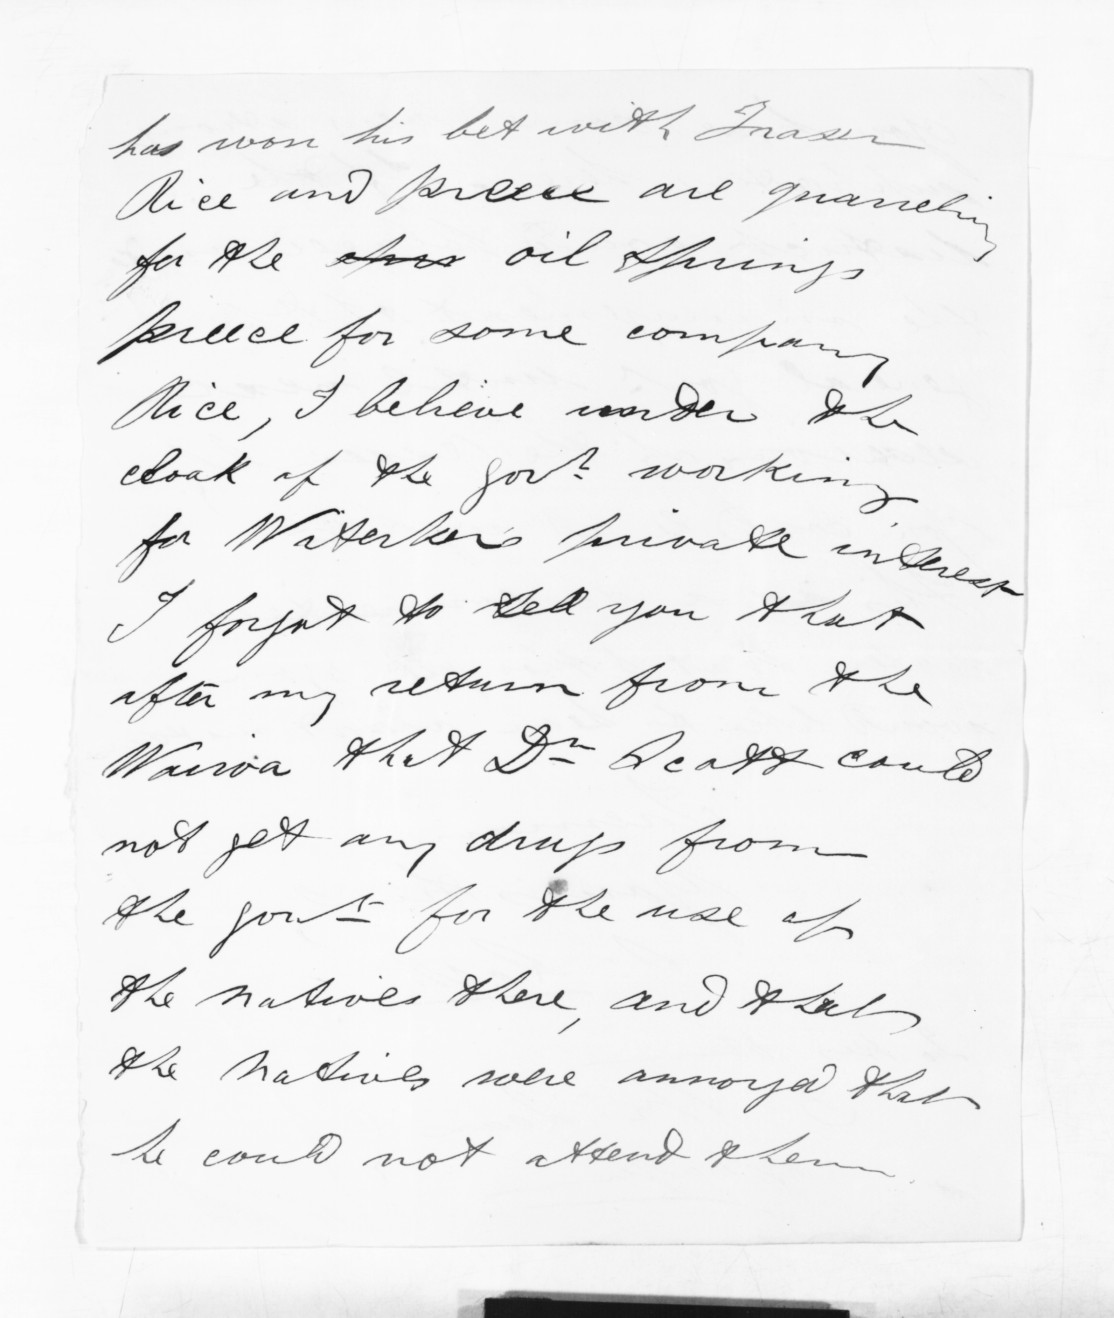 has won his bet with Fraser
Rice and preece are quarreling
for the oil springs
preece for some company
Rice, I believe under the
cloak of the govt. working
for Witerker's private interest
I forgot to tell you that
after my return from the
Wairoa that Dr Scott could
not get any drugs from
the govt for the use of
the natives there, and that
the natives were annoyed that
he could not attend them.